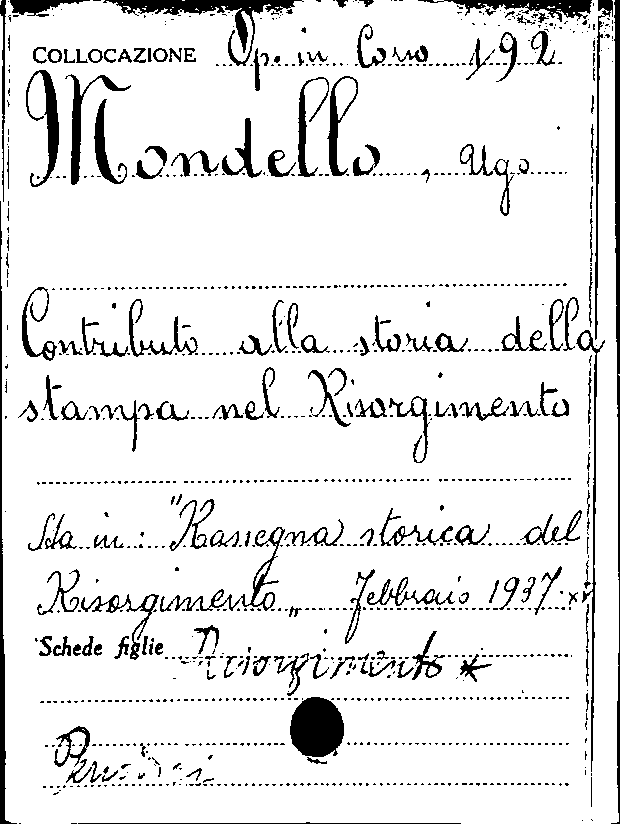 COLLOCAZIONE Op. in Corso 192
Mondello, Ugo
Contributo alla storia della
stampa nel Risorgimento
Sta in: "Rassegna storica del
Risorgimento„ febbraio 1937.
Schede figlie Risorgimento *